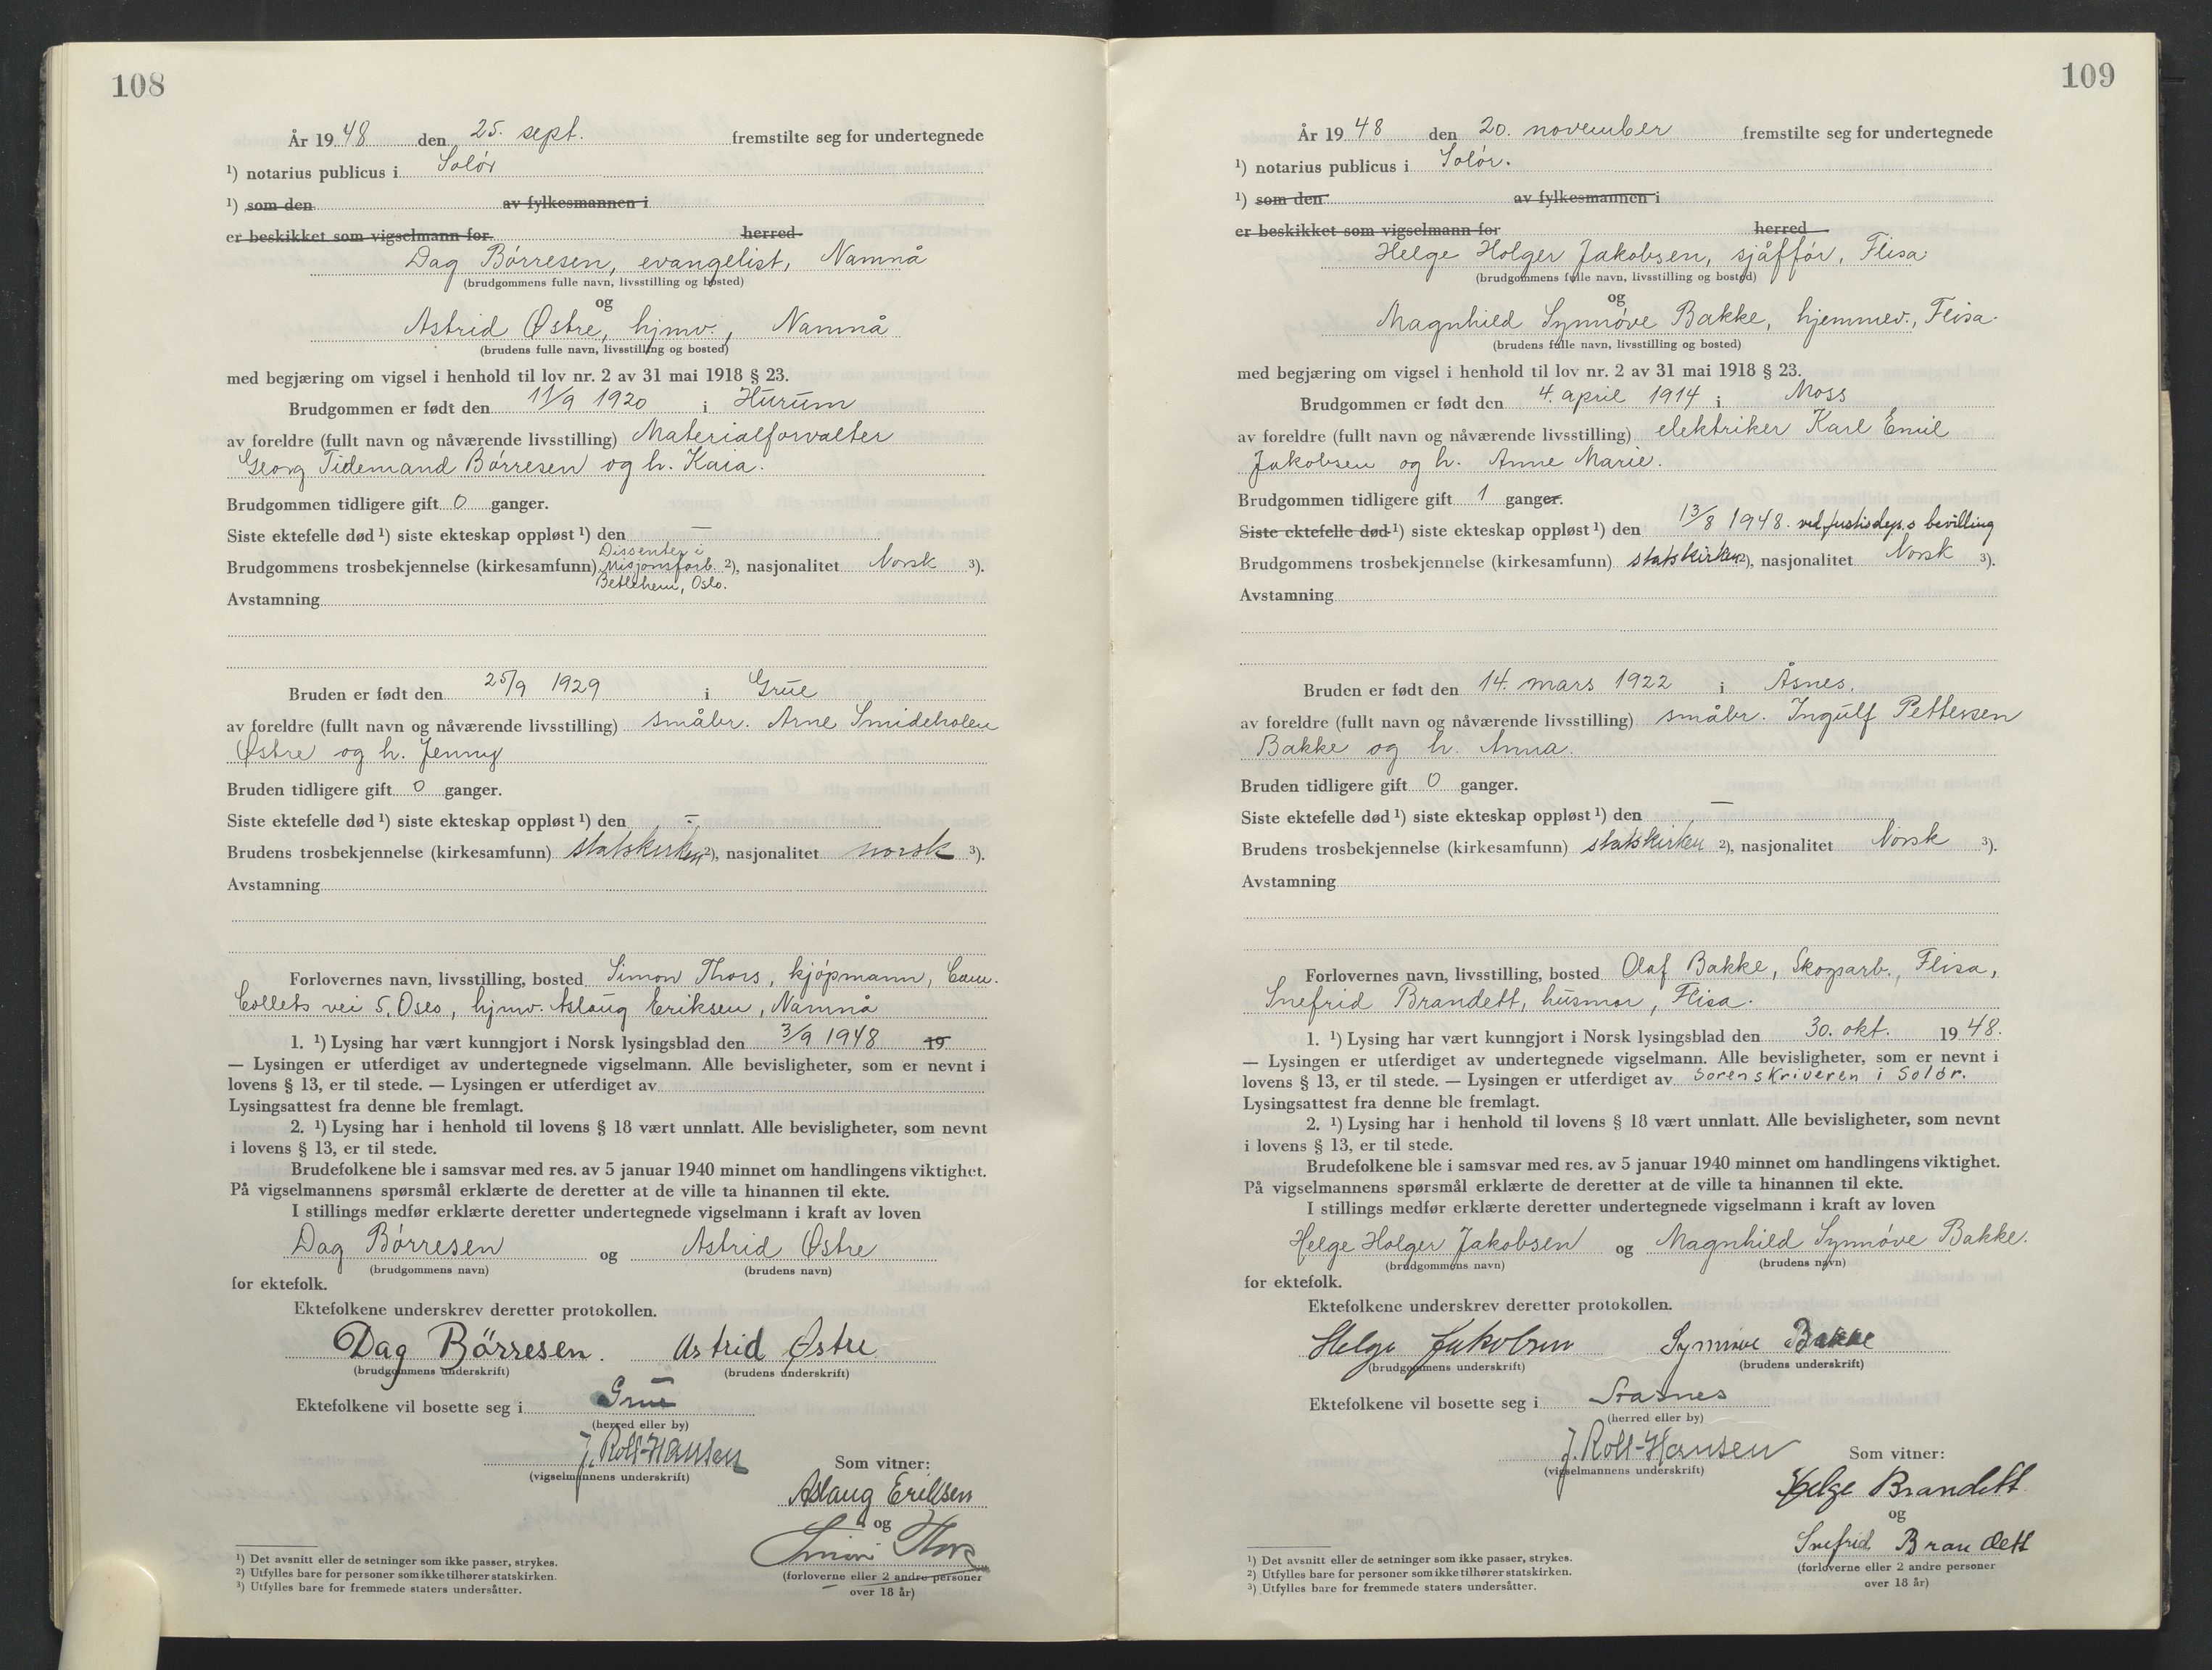 108
År 19 48 den 25. sept. fremstilte seg for undertegnede
¹) notarius publicus i Solør
¹) som den av fylkesmannen i
er beskikket som vigselmann for herred
Dag Børresen, evangelist, Namnå
(brudgommens fulle navn, livsstilling og bosted)
og
Astrid Østre, hjmv., Namnå
(brudens fulle navn, livsstilling og bosted)
med begjæring om vigsel i henhold til lov nr. 2 av 31 mai 1918 § 23.
Brudgommen er født den 11/9 1920 i Hurum
av foreldre (fullt navn og nåværende livsstilling) Materialforvalter
Georg Tidemand Børresen og h. Kaia.
Brudgommen tidligere gift 0 ganger.
Siste ektefelle død ¹) siste ekteskap oppløst ¹) den —
Dissenter i
Brudgommens trosbekjennelse (kirkesamfunn) Misjonsforb. ²), nasjonalitet Norsk ³).
Betlehem, Oslo.
Avstamning
Bruden er født den 25/9 1929 i Grue
av foreldre (fullt navn og nåværende livsstilling) småbr. Arne Smideholen
Østre og h. Jenny
Bruden tidligere gift 0 ganger.
Siste ektefelle død ¹) siste ekteskap oppløst ¹) den —
Brudens trosbekjennelse (kirkesamfunn) statskirken ²), nasjonalitet norsk ³).
Avstamning
Forlovernes navn, livsstilling, bosted Simon Thors, kjøpmann, Cam.
Collets vei 5, Oslo, hjmv. Aslaug Eriksen, Namnå
1. ¹) Lysing har vært kunngjort i Norsk lysingsblad den 3/9 1948 19
— Lysingen er utferdiget av undertegnede vigselmann. Alle bevisligheter, som er nevnt i
lovens § 13, er til stede. — Lysingen er utferdiget av
Lysingsattest fra denne ble fremlagt.
2. ¹) Lysing har i henhold til lovens § 18 vært unnlatt. Alle bevisligheter, som nevnt
i lovens § 13, er til stede.
Brudefolkene ble i samsvar med res. av 5 januar 1940 minnet om handlingens viktighet.
På vigselmannens spørsmål erklærte de deretter at de ville ta hinannen til ekte.
I stillings medfør erklærte deretter undertegnede vigselmann i kraft av loven
Dag Børresen og Astrid Østre
(brudgommens navn) (brudens navn)
for ektefolk.
Ektefolkene underskrev deretter protokollen.
Dag Børresen. Astrid Østre
(brudgommens underskrift) (brudens underskrift)
Ektefolkene vil bosette seg i Grue
(herred eller by)
J. Roll-Hansen
(vigselmannens underskrift)
Som vitner:
Aslaug Eriksen
og
Simon Thors
(forloverne eller 2 andre personer
over 18 år)
¹) Det avsnitt eller de setninger som ikke passer, strykes.
²) Utfylles bare for personer som ikke tilhører statskirken.
³) Utfylles bare for fremmede staters undersåtter.
109
År 19 48 den 20. november fremstilte seg for undertegnede
¹) notarius publicus i Solør.
¹) som den av fylkesmannen i
er beskikket som vigselmann for herred
Helge Holger Jakobsen, sjåffør, Flisa
(brudgommens fulle navn, livsstilling og bosted)
og
Magnhild Synnøve Bakke, hjemmev., Flisa.
(brudens fulle navn, livsstilling og bosted)
med begjæring om vigsel i henhold til lov nr. 2 av 31 mai 1918 § 23.
Brudgommen er født den 4. april 1914 i Moss
av foreldre (fullt navn og nåværende livsstilling) elektriker Karl Emil
Jakobsen og h. Anne Marie.
Brudgommen tidligere gift 1 ganger.
Siste ektefelle død ¹) siste ekteskap oppløst ¹) den 13/8 1948. ved justisdep.s bevilling
Brudgommens trosbekjennelse (kirkesamfunn) statskirken ²), nasjonalitet Norsk ³).
Avstamning
Bruden er født den 14. mars 1922 i Åsnes.
av foreldre (fullt navn og nåværende livsstilling) småbr. Ingulf Pettersen
Bakke og h. Anna.
Bruden tidligere gift 0 ganger.
Siste ektefelle død ¹) siste ekteskap oppløst ¹) den —
Brudens trosbekjennelse (kirkesamfunn) statskirken ²), nasjonalitet Norsk ³).
Avstamning
Forlovernes navn, livsstilling, bosted Olaf Bakke, Skogsarb., Flisa,
Snefrid Brandett, husmor, Flisa.
1. ¹) Lysing har vært kunngjort i Norsk lysingsblad den 30. okt. 19 48.
— Lysingen er utferdiget av undertegnede vigselmann. Alle bevisligheter, som er nevnt i
lovens § 13, er til stede. — Lysingen er utferdiget av Sorenskriveren i Solør.
Lysingsattest fra denne ble fremlagt.
2. ¹) Lysing har i henhold til lovens § 18 vært unnlatt. Alle bevisligheter, som nevnt
i lovens § 13, er til stede.
Brudefolkene ble i samsvar med res. av 5 januar 1940 minnet om handlingens viktighet.
På vigselmannens spørsmål erklærte de deretter at de ville ta hinannen til ekte.
I stillings medfør erklærte deretter undertegnede vigselmann i kraft av loven
Helge Holger Jakobsen og Magnhild Synnøve Bakke.
(brudgommens navn) (brudens navn)
for ektefolk.
Ektefolkene underskrev deretter protokollen.
Helge Jakobsen Synnøve Bakke
(brudgommens underskrift) (brudens underskrift)
Ektefolkene vil bosette seg i Aasnes
(herred eller by)
J. Roll-Hansen
(vigselmannens underskrift)
Som vitner:
Helge Brandett
og
Snefrid Brandett
(forloverne eller 2 andre personer
over 18 år)
¹) Det avsnitt eller de setninger som ikke passer, strykes.
²) Utfylles bare for personer som ikke tilhører statskirken.
³) Utfylles bare for fremmede staters undersåtter.